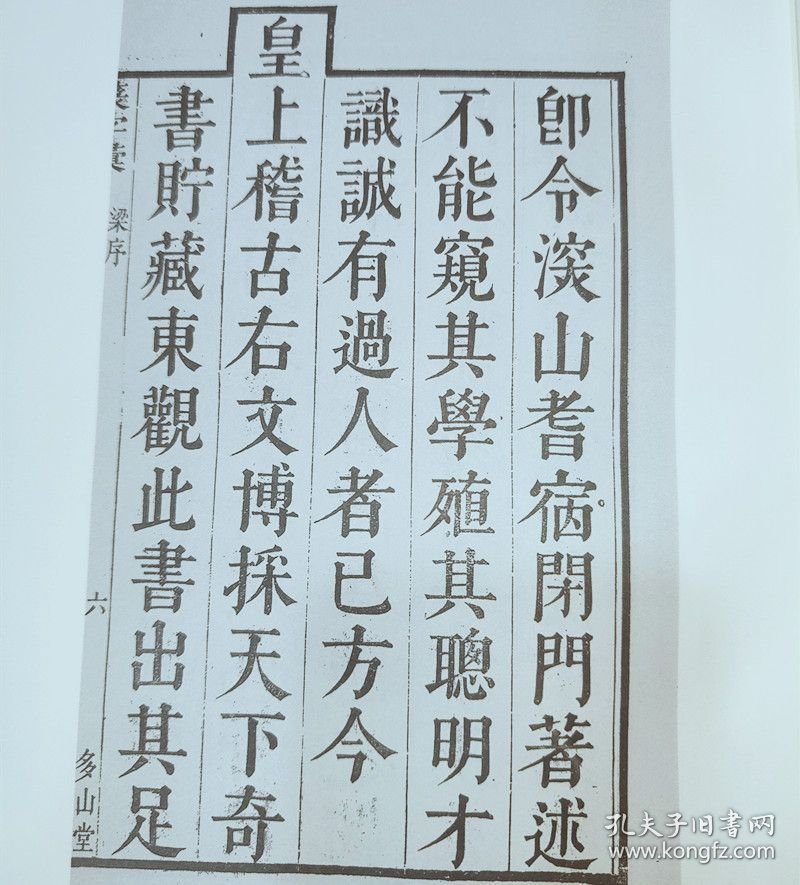 卽令深山耆宿閉門著述
不能窺其學殖其聰明才
識誠有過人者已方今
皇上稽古右文博採天下奇
書貯藏東觀此書出其足
梁序
六
多山堂
孔夫子旧书网
www.kongfz.com